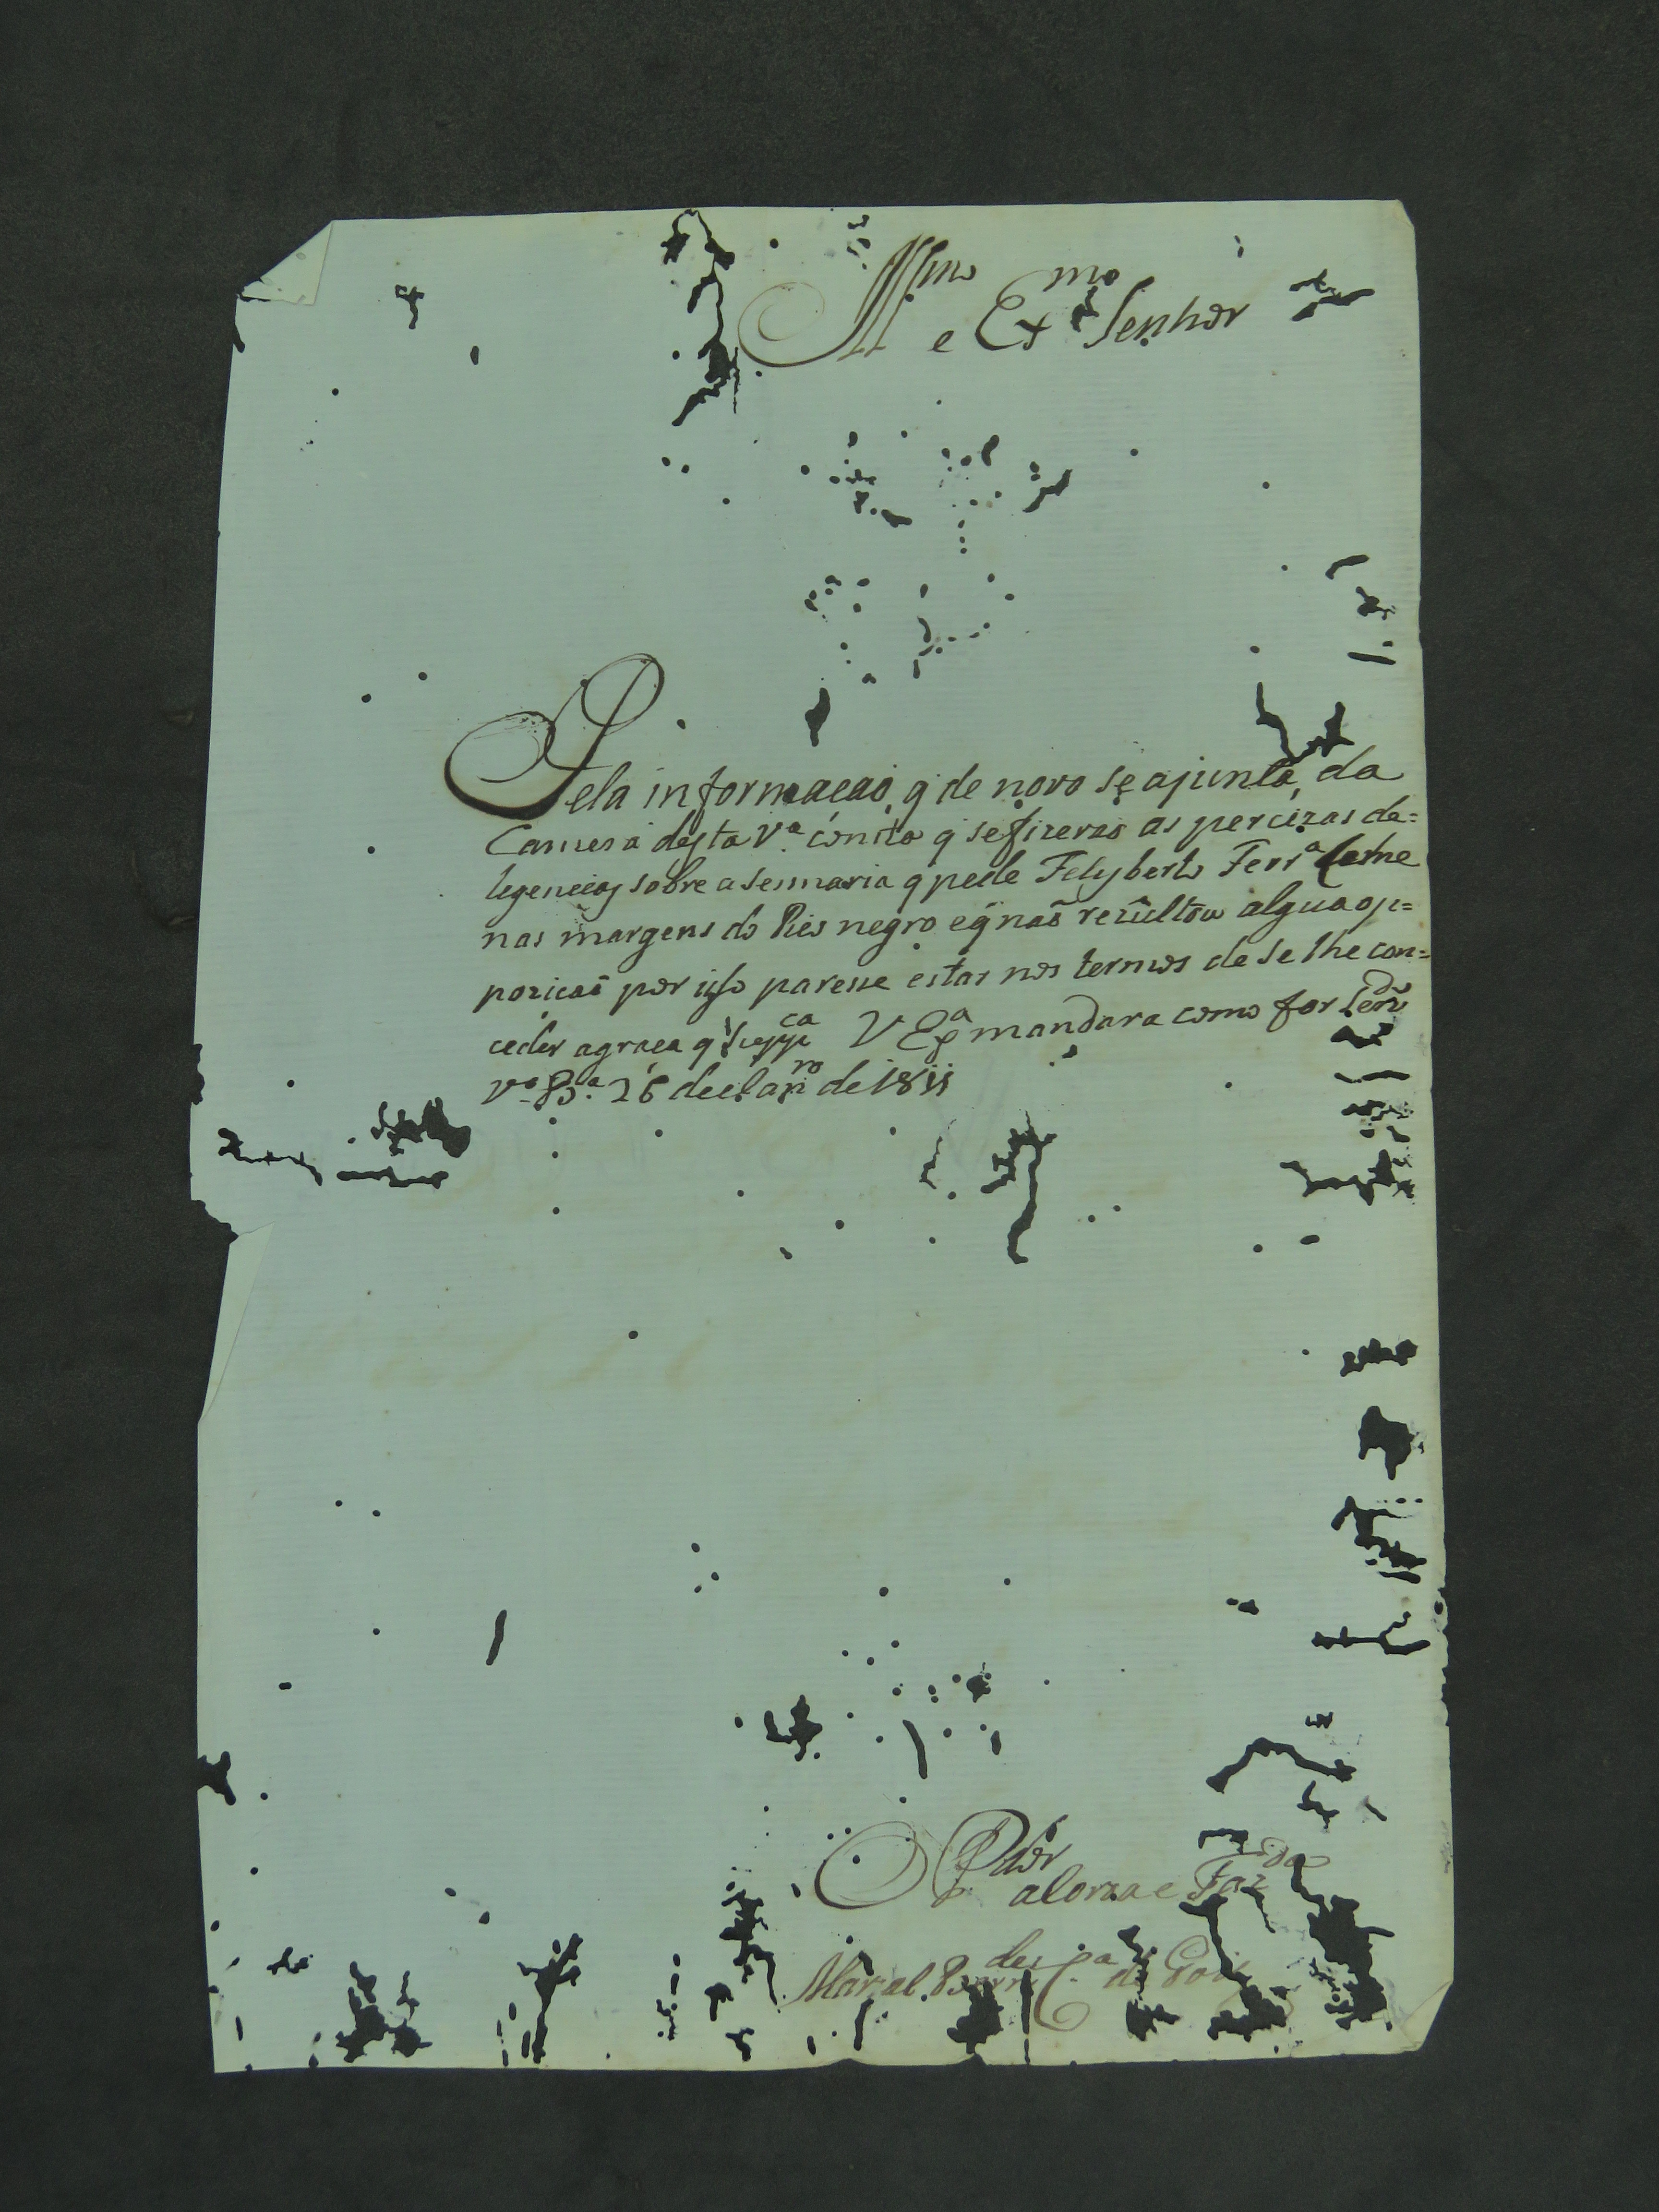 Illmo e Exmo Senhor
Pela informacaõ, q̃ de novo se ajunta, da
Camera desta Va. consta q̃ se fizeraõ as percizas de=
legencias sobre a sesmaria q̃ pede Felysberto Ferra Leme
nas margens do Rio negro e q̃ naõ rezultou algua op=
pozicaõ por isso paresse estar nos termos de se lhe con=
ceder a graca q̃ supp.ca V Exa mandara como for
Va Ba. 26 de Janro de 1811
O Pdor
da Coroa e Fazda
Manoel
de Goes